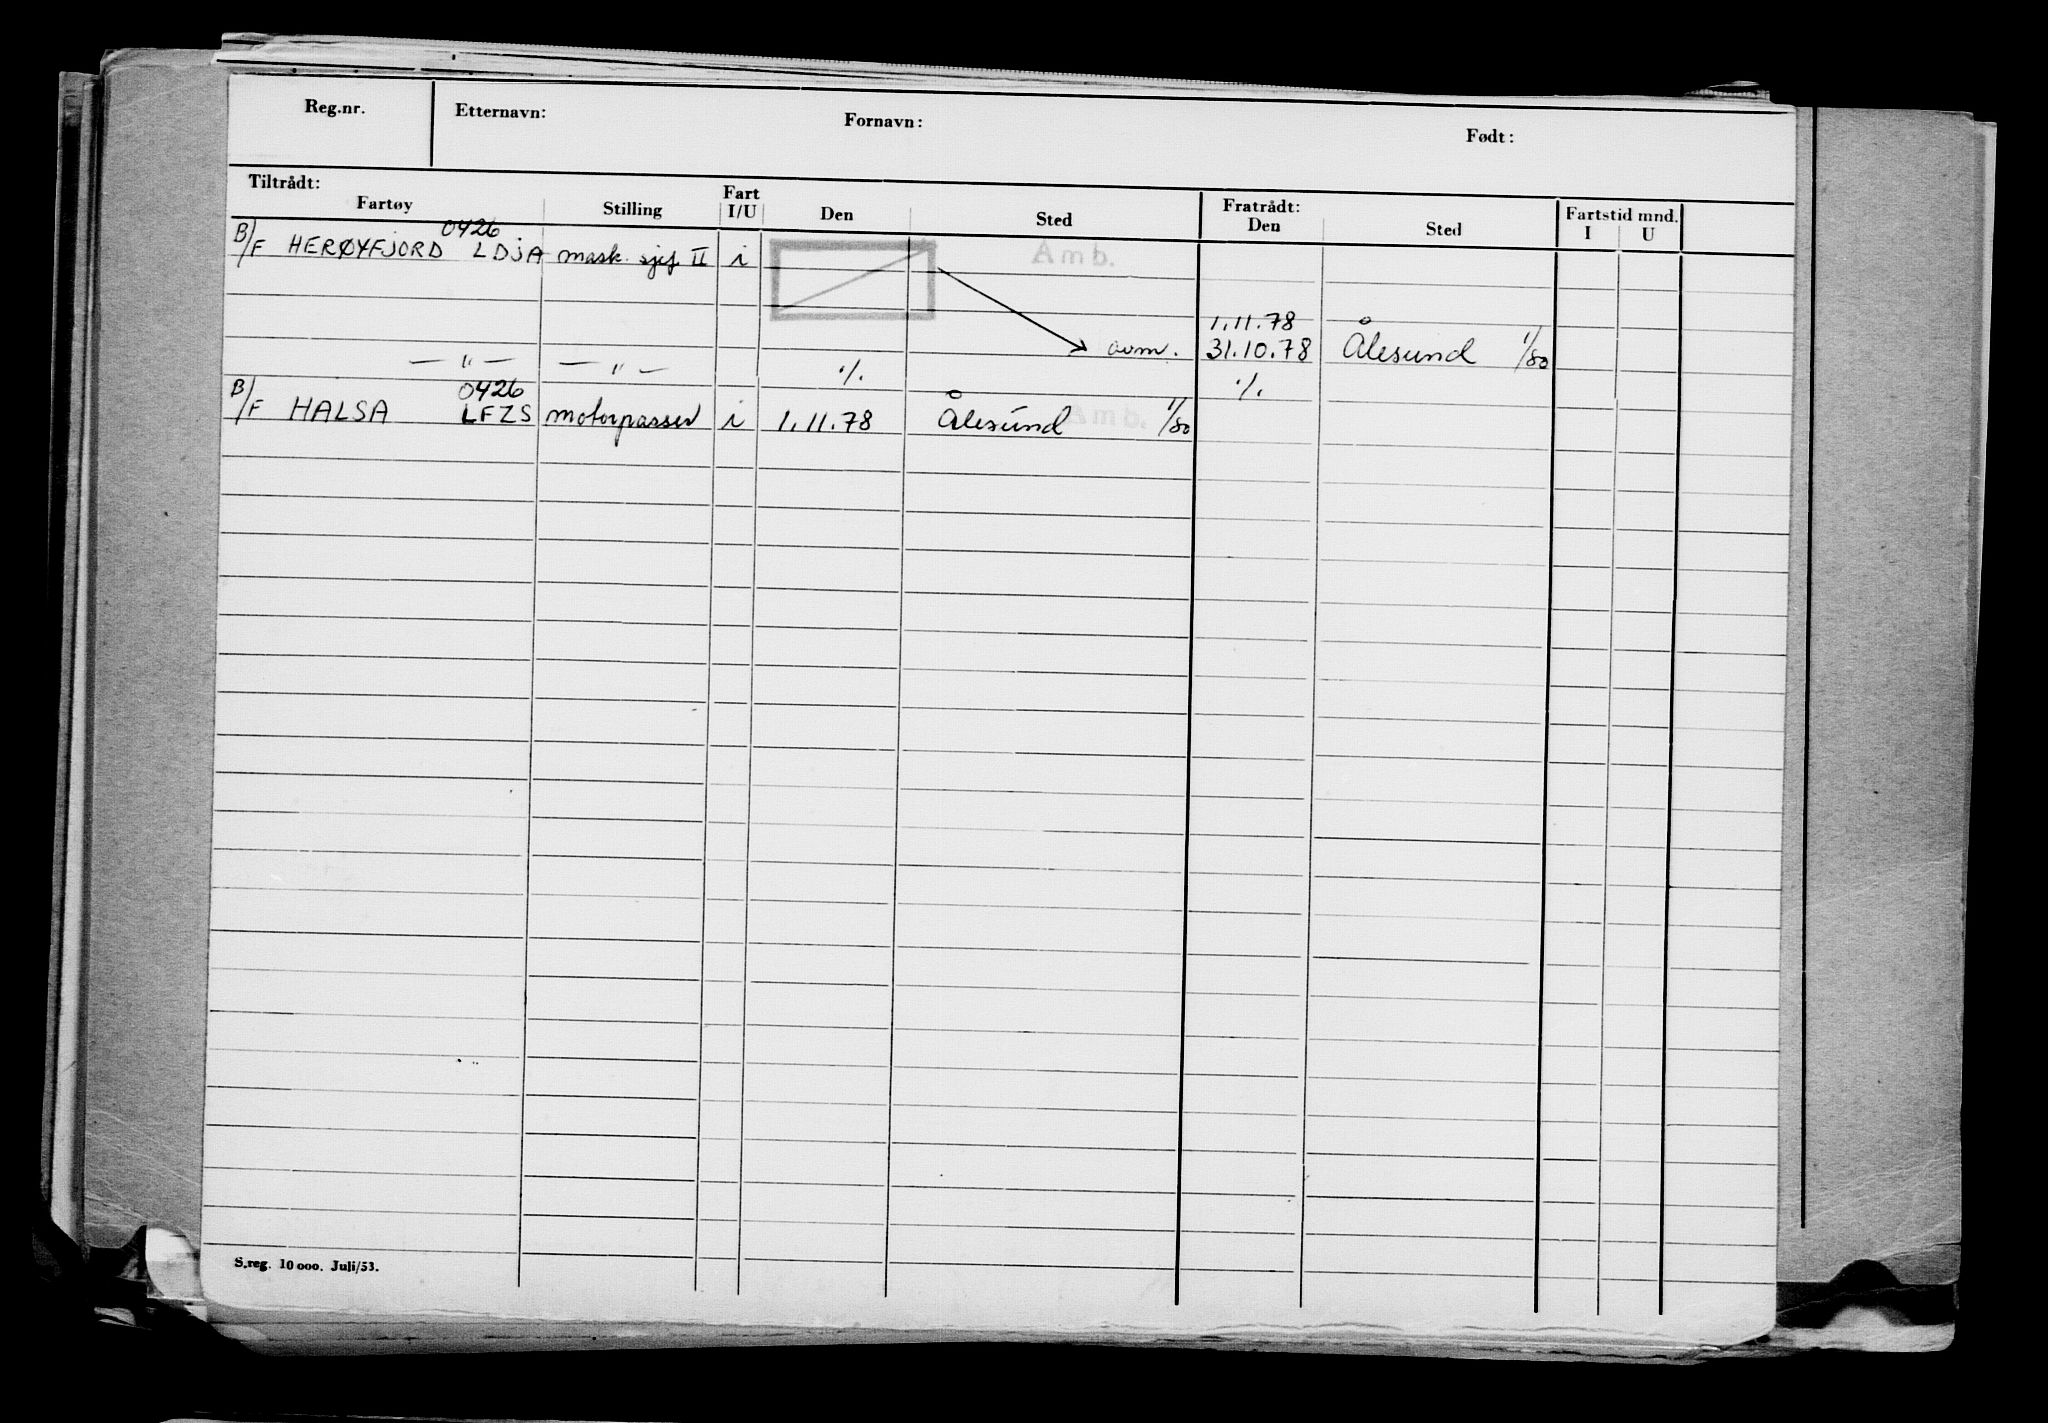 Reg.nr. Etternavn: Fornavn: Født:
Tiltrådt: Fart Fratrådt: Fartstid mnd.
Fartøy Stilling I/U Den Sted Den Sted I U
0426
B/F HERØYFJORD LDJA mask. sjef II i Amb.
1.11.78
31.10.78 Ålesund 1/80
— " — — " — ·/.
0426 ·/.
B/F HALSA LFZS motorpasser i 1.11.78 Ålesund Amb. 1/80
S.reg. 10 000. Juli/53.